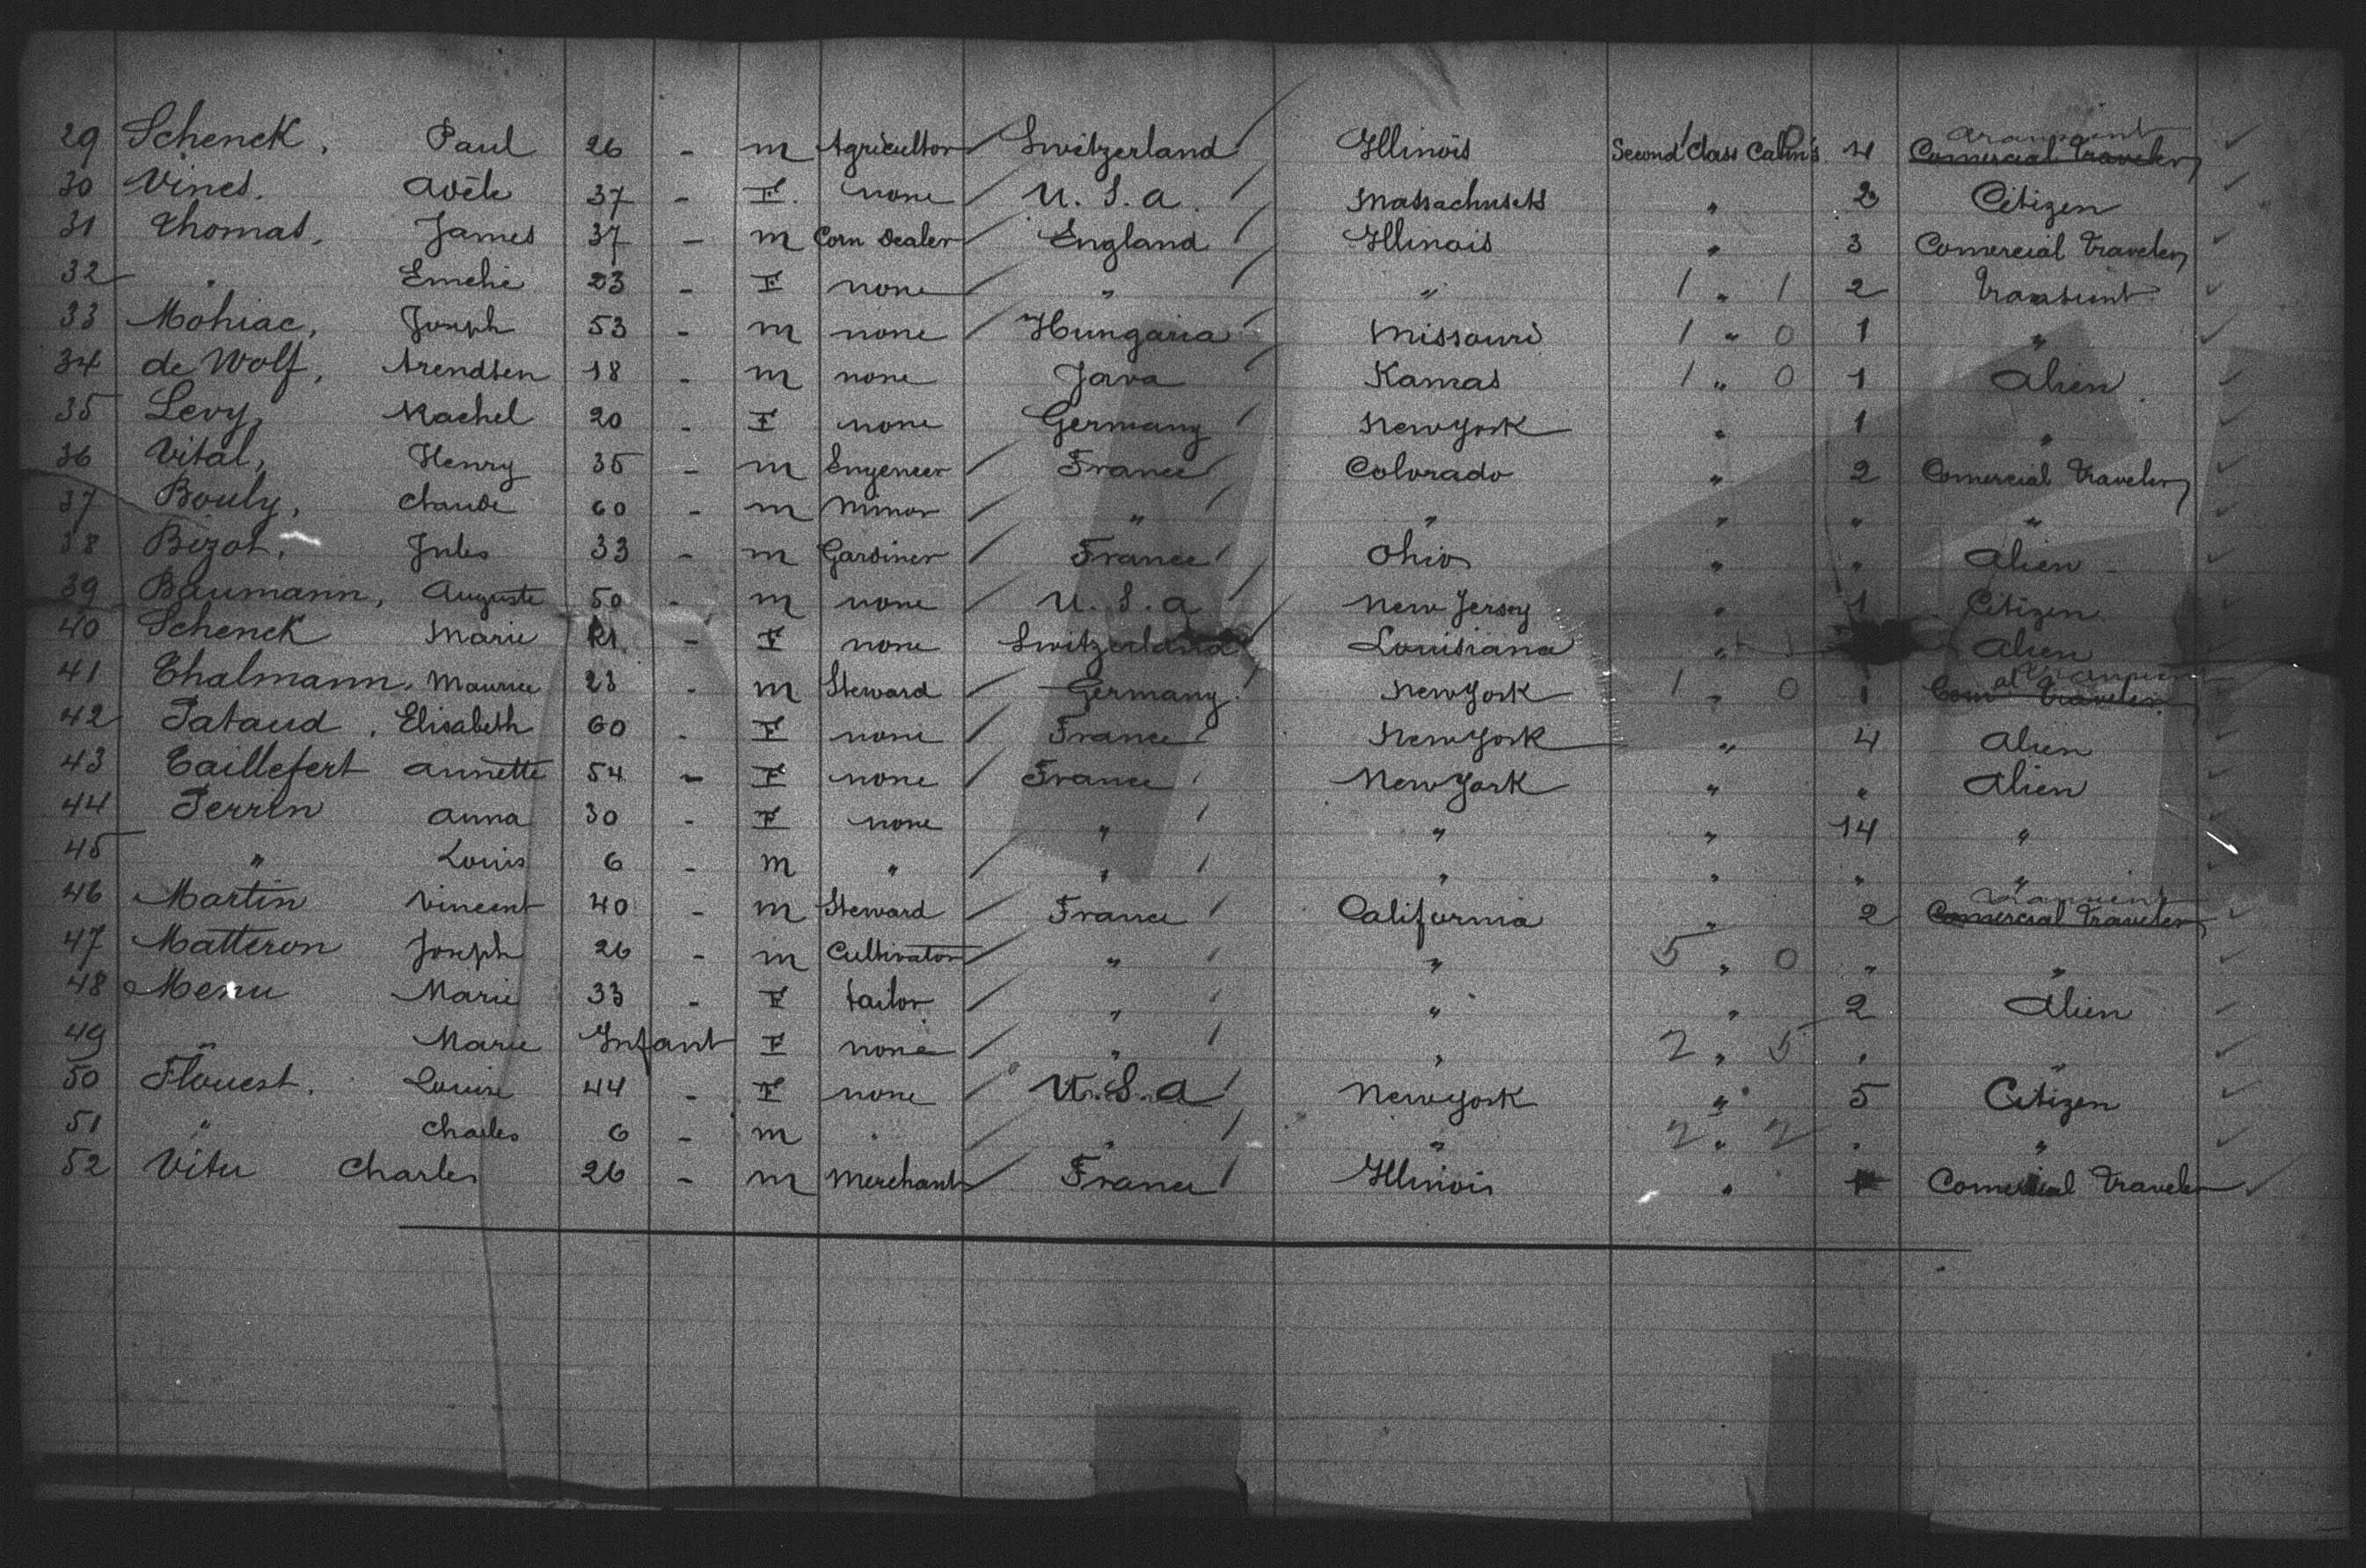 29 Schenck, Paul 26 - m Agricultor Switzerland Illinois Second Class Cabin's 4 Transient Comercial Traveler
30 Vines. Adèle 37 - F. none U. S. a. Massachusets " 2 Citizen
31 Thomas, James 37 - m Corn Dealer England Illinois " 3 Comercial Traveler
32 " Emelie 23 - F none " " 1 " 1 2 Transient
33 Mohiac, Joseph 53 - m none Hungaria Missouri 1 " 0 1 "
34 de Wolf, Arendsen 18 - m none Java Kansas 1 " 0 1 Alien
35 Levy, Rachel 20 - F none Germany New York " 1 "
36 Vital, Henry 35 - m Engeneer France Colorado " 2 Comercial Traveler
37 Bouly, Claude 60 - m Minor " " " " "
38 Bizot, Jules 33 - m Gardiner France Ohio " " Alien -
39 Baumann, Auguste 50 - m none U. S. a New Jersey " 1 Citizen
40 Schenck Marie - F none Switzerland Louisiana " Alien
41 Thalmann, Maurice 23 - m Steward Germany. New York 1 " 0 1 Traveler
42 Pataud, Elisabeth 60 - F none France New York " 4 Alien
43 Taillefert Annette 54 - F none France New York " " Alien
44 Perrin Anna 30 - F none " " " 14 "
45 " Louis 6 - m " " " " " "
46 Martin Vincent 40 - m Steward France California " 2 Transient Comercial Traveler
47 Matteron Joseph 26 - m Cultivator " " 5 " 0 " "
48 Menu Marie 33 - F tailor " " " 2 Alien
49 " Marie Infant F none " " 2 " 5 " "
50 Flouest. Louise 44 - F none U. S. a New York " 5 Citizen
51 " Charles 6 - m " " " 2 " 2 " "
52 Vitu Charles 26 - m Merchant France Illinois " Comercial Traveler